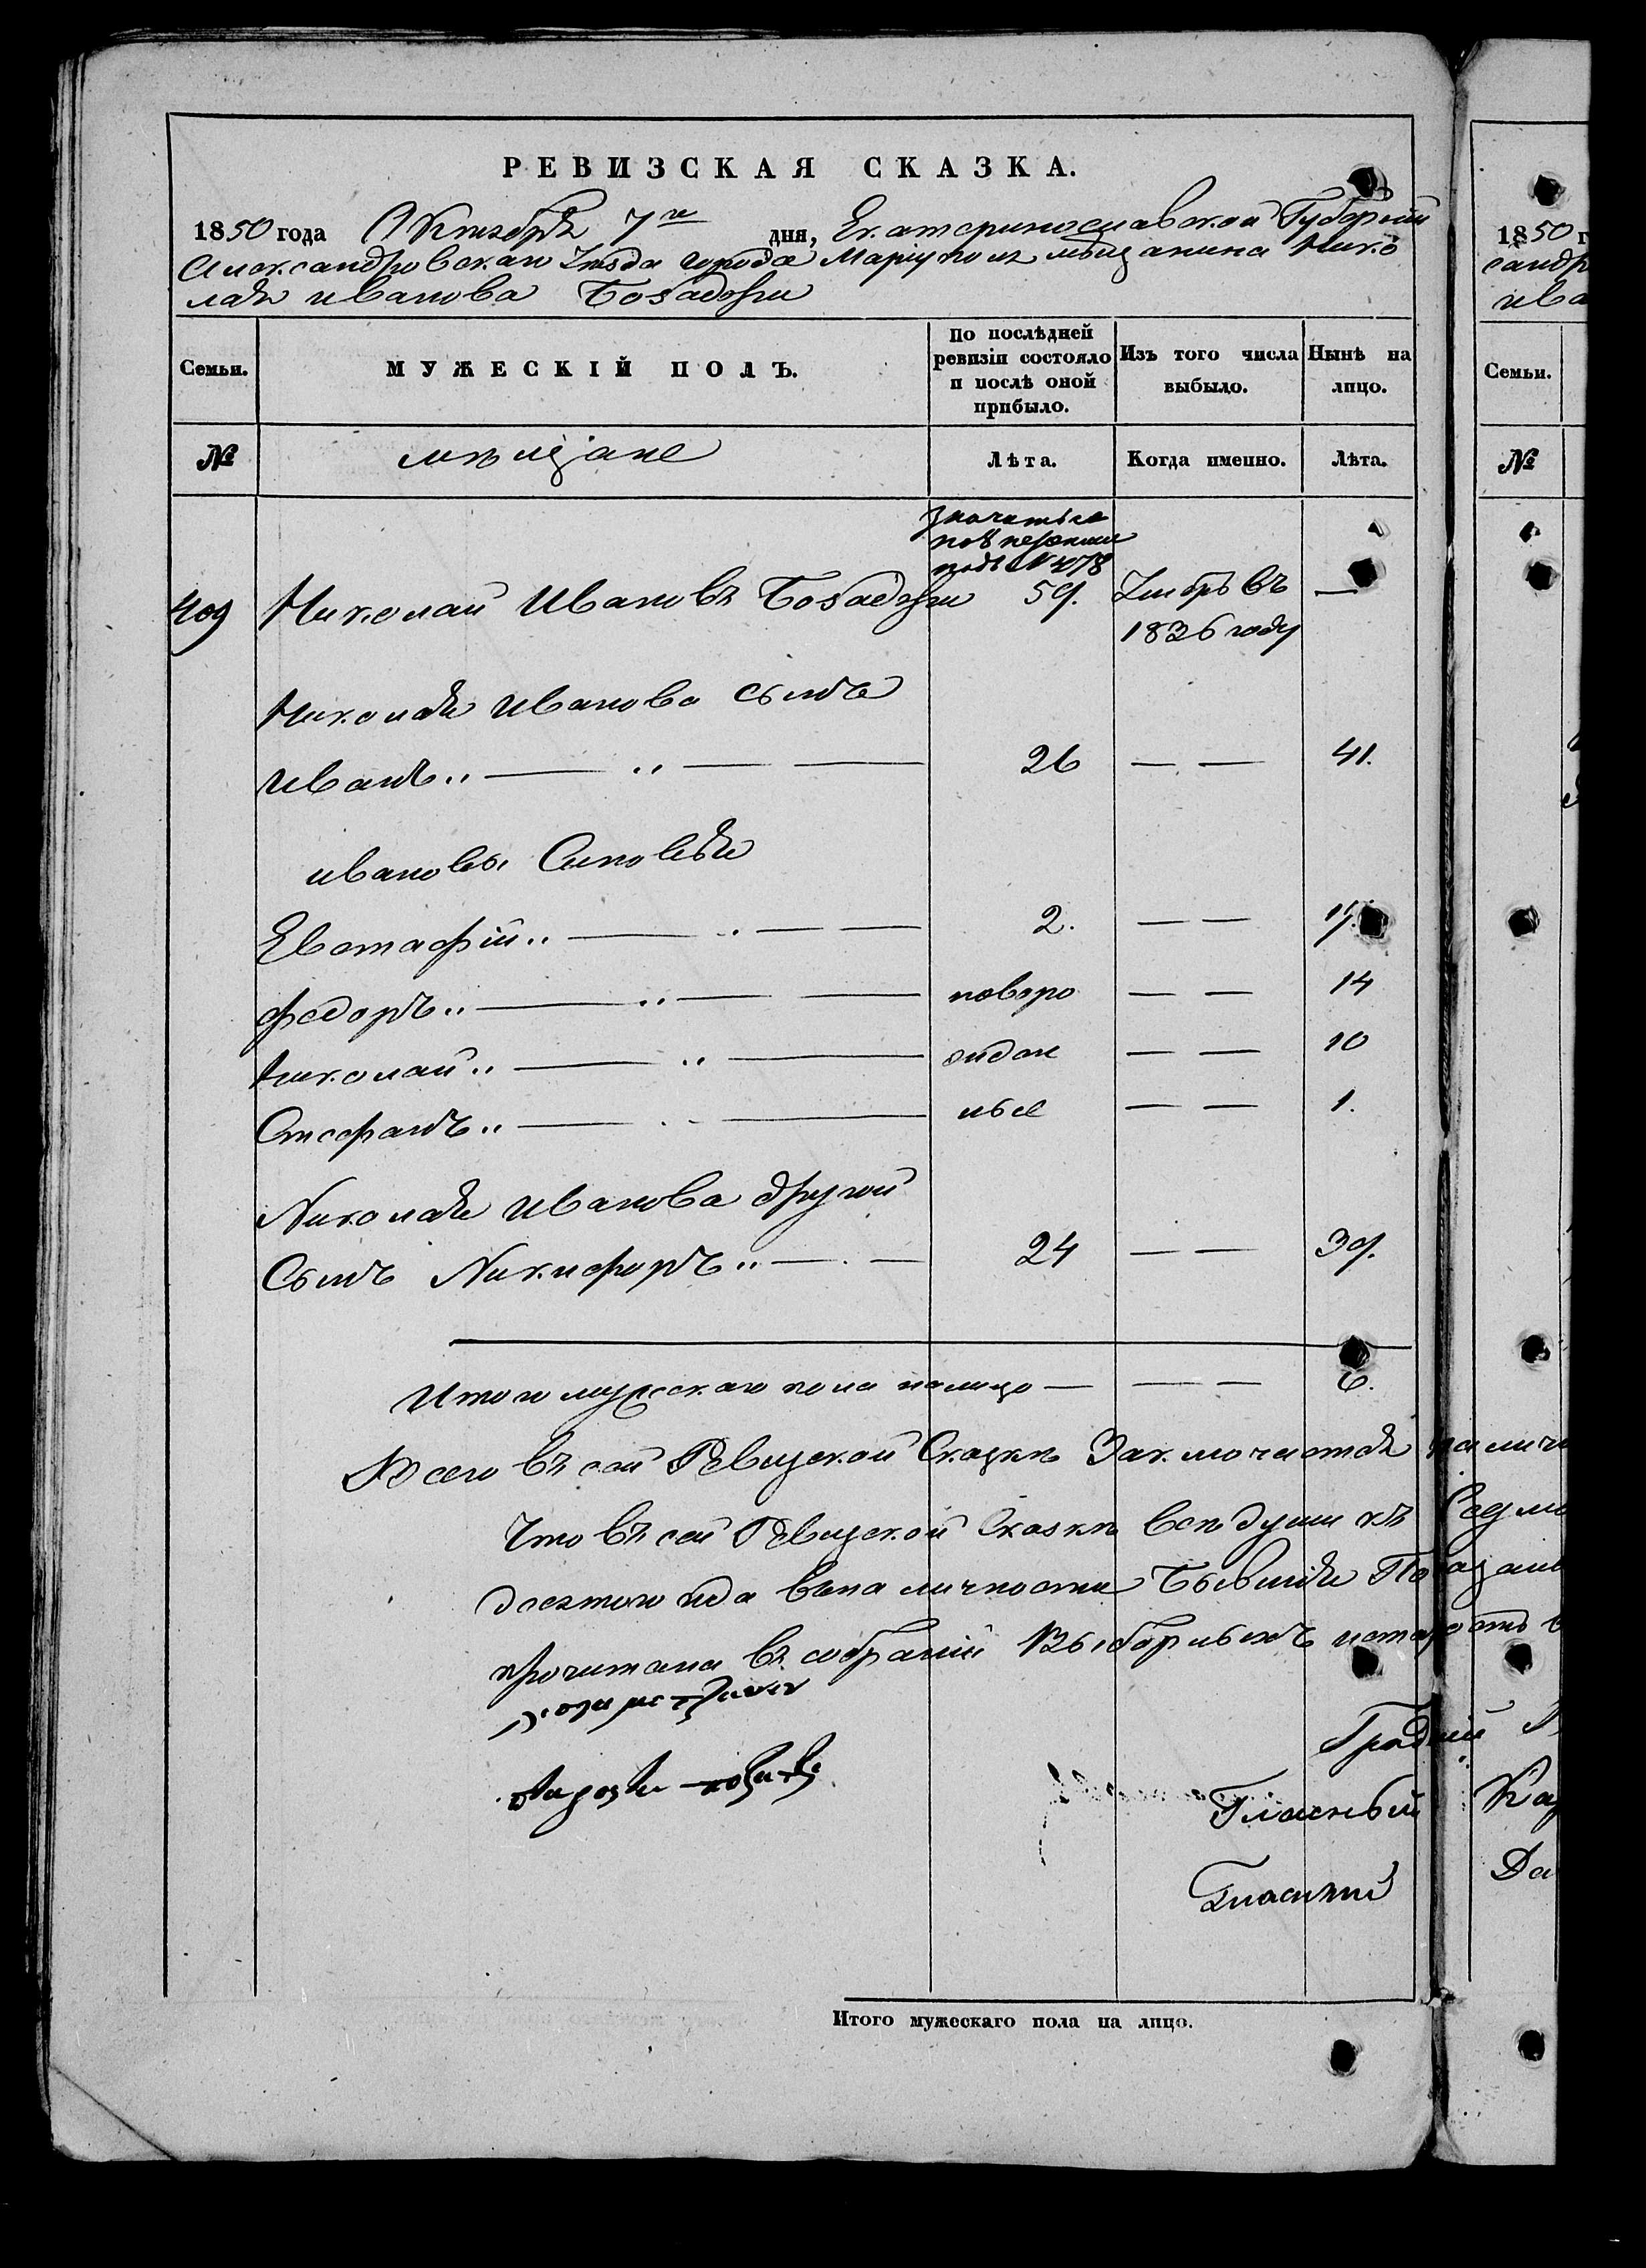 РЕВИЗСКАЯ СКАЗКА.
1850 года Октября 7го дня, Екатеринославской Губерніи
Александровскаго Уѣзда города Маріуполя мѣщанина Нико
лая Иванова
Семьи.
МУЖЕСКІЙ ПОЛЪ.
По послѣдней
ревизіи состояло
и послѣ оной
прибыло.
Изъ того числа
выбыло.
Нынѣ на
лицо.
№
мѣщане
Лѣта.
Когда именно.
Лѣта.
значатся
по ревизіи
подъ № 478
409 Николай Ивановъ 59. Умбръ въ —
1836 году
Николая Иванова сынъ
Иванъ „ — „ — — 26 — — 41.
Ивановы Сыновья
Евстафій „ — „ — — 2. — — 17.
Федоръ „ — „ — — новоро — — 14
Николай „ — „ — жден — — 10
Стефанъ „ — — ные — — 1.
Николая Иванова другой
Сынъ Никифоръ „ — — 24 — — 39.
Итого мужескаго пола налицо — — — 6.
Всего въ сей Ревизской Сказкѣ Заключается наличн
Что въ сей Ревизской Сказкѣ всѣ души къ Седмо
десятого года въ наличности Бывшія Показаны
прочитана въ собраніи Выборныхъ
Градскій
Гласный
Гласный
Итого мужескаго пола на лицо.
1850 г
сандр
ива
Семьи.
№
Кар
Да